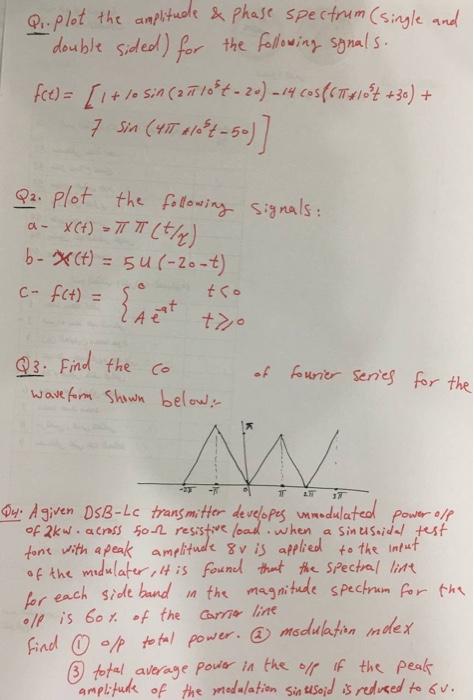 Q1. plot the amplitude & phase spectrum (single and
double sided) for the following sgnals.
f(t) = [1 + 10 sin (2π10⁵t - 20) - 14 cos(6π*10⁵t + 30) +
7 sin (4π*10⁵t - 50)]
Q2. plot the following signals:
a- x(t) = π π (t/2)
b- x(t) = 5 u (-20-t)
c- f(t) = { 0 t<0
A e^-at t≥0
Q3. Find the Co of fourier series for the
waveform shown below:-
π
-2π -π 0 π 2π 3π
Q4. A given DSB-LC transmitter developes unmodulated power o/p
of 2kw. across 50-Ω resistive load. when a sinusoidal test
tone with a peak amplitude 8v is applied to the input
of the modulater, it is found that the spectral line
for each side band in the magnitude spectrum for the
o/p is 60% of the carrier line
find ① o/p total power. ② modulation index
③ total average power in the o/p if the peak
amplitude of the modulation sinusoid is reduced to 6v.